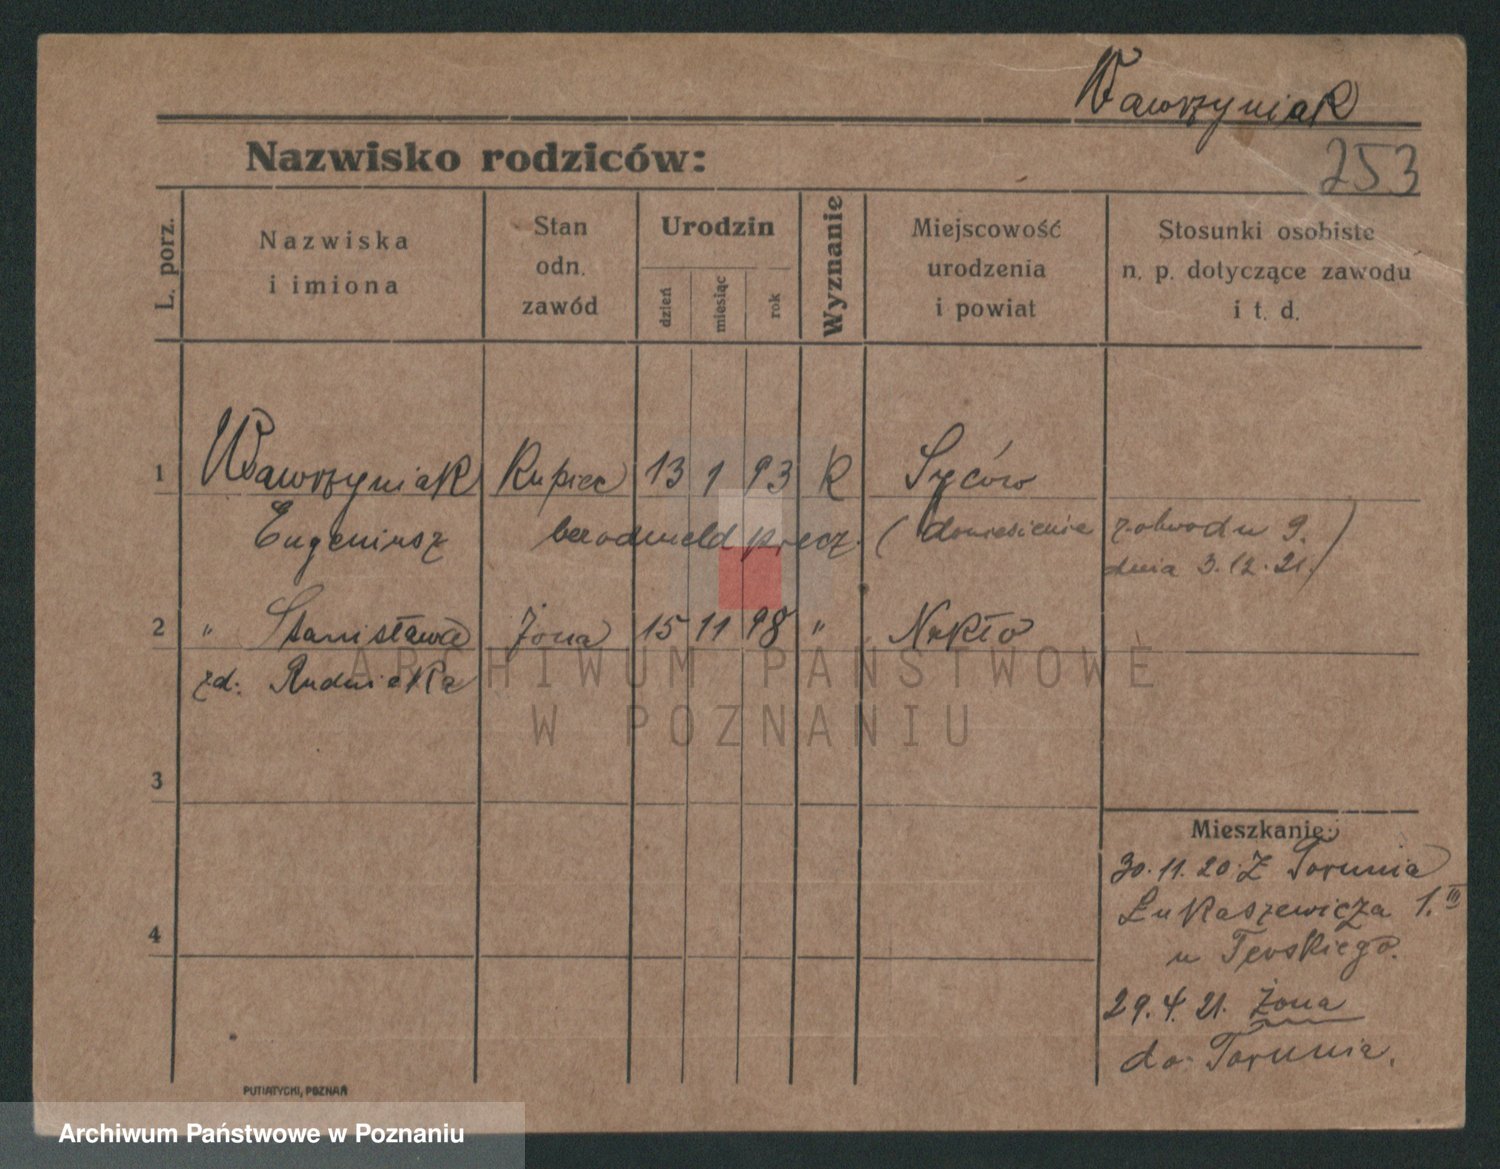 Wawrzyniak
Nazwisko rodziców:
253
L. porz.
Nazwiska
i imiona
Stan
odn.
zawód
Urodzin
dzień
miesiąc
rok
Wyznanie
Miejscowość
urodzenia
i powiat
Stosunki osobiste
n. p. dotyczące zawodu
i t. d.
1 Wawrzyniak Kupiec 13 1 93 K Syców
Eugeniusz bez odmeld precz. (doniesienie z obwodu 9.
dnia 3.12.21.)
2 " Stanisława żona 15 11 98 " Nakło
zd: Rudnicka
ARCHIWUM PAŃSTWOWE
W POZNANIU
3
Mieszkanie:
30.11.20. Z Torunia
Łukaszewicza 1. III
u
4
29.4.21. Żona
do Torunia.
PUTIATYCKI, POZNAŃ
Archiwum Państwowe w Poznaniu